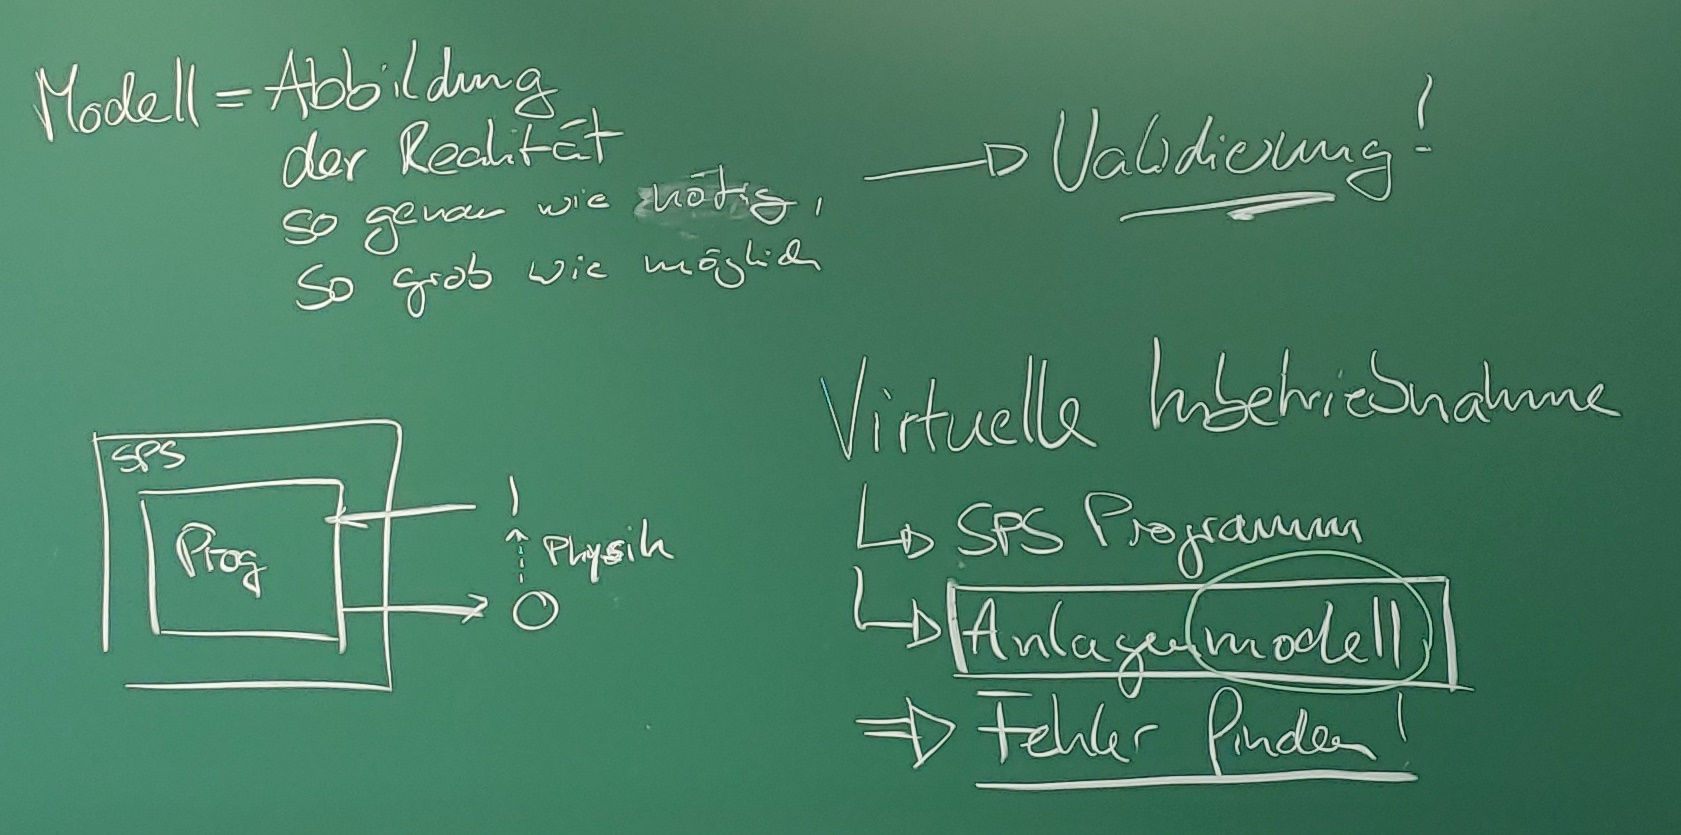 Modell = Abbildung
der Realität
so genau wie nötig,
so grob wie möglich
Validierung!
Virtuelle Inbetriebnahme
SPS Programm
Anlagenmodell
Fehler finden!
SPS
Prog
Physik